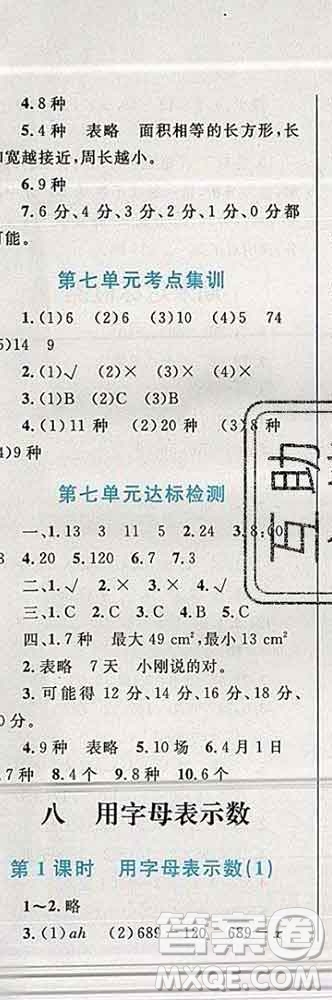 4.8种
5.4种 表略 面积相等的长方形,长
和宽越接近,周长越小。
6.9种
7.6分、4分、3分、2分、0分都
可能。
第七单元考点集训
1.(1)6 (2)6 (3)10 (4)5 74
(5)14 9
2.(1)√ (2)× (3)×
3.(1)B (2)C (3)B
4.(1)11种 (2)20种 (3)8种
(4)9种
第七单元达标检测
一、1.13 3 11 5 2.24 3.8:00
8 4.20 5.120 6.7 7.3
二、1.√ 2.× 3.× 4.√
三、1.C 2.B 3.B 4.C
四、1.7种 最大49 cm²,最小13 cm²
2.表略 7天 小刚说的对。
3.可能得12分、14分、16分、18分、
20分。
4.9种 表略 5.10场 6.4月1日
7.5种 8.4个 9.8种 10.8个
八 用字母表示数
第1课时 用字母表示数(1)
1~2.略
3.(1)ah (2)689-120 689-x
互助
答案圈
MXQE.COM